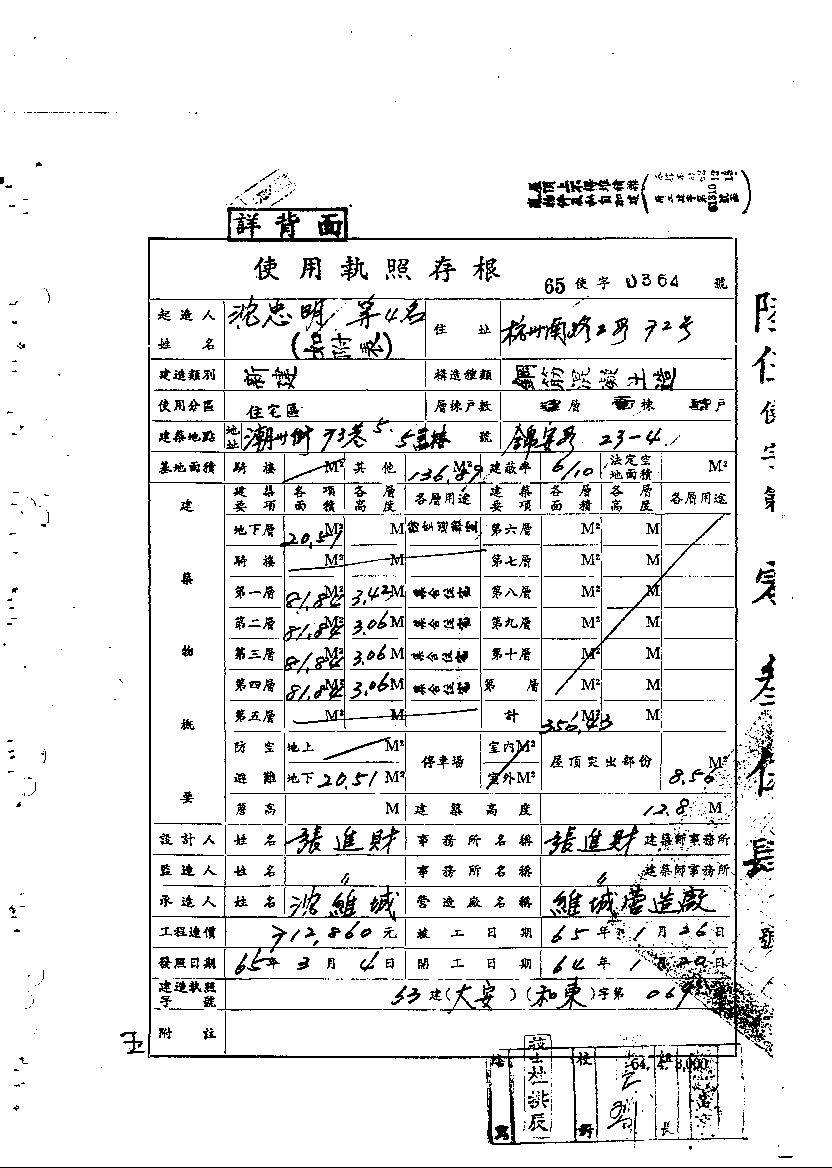 詳背面
使用執照存根
65 使字 0364 號
起造人姓名 沈忠明 等4名 (如附表) 住址 杭州南路2段72号
建造類別 新建 構造種類 鋼筋混凝土造
使用分區 住宅區 層棟戶數 層 棟 戶
建築地點 地址 潮州街73巷5. 號 錦安段 23-4
基地面積 騎樓 M² 其他 136.89 M² 建蔽率 6/10 法定空地面積 M²
建築物概要
建築要項 各項面積 各層高度 各層用途 建築要項 各層面積 各層高度 各層用途
地下層 20.51 M² M 第六層 M² M
騎樓 M² M 第七層 M² M
第一層 81.84 M² 3.42 M 集合住宅 第八層 M² M
第二層 81.84 M² 3.06 M 集合住宅 第九層 M² M
第三層 81.84 M² 3.06 M 集合住宅 第十層 M² M
第四層 81.84 M² 3.06 M 集合住宅 第 層 M² M
第五層 M² M 計 356.43 M² M
防空避難 地上 M² 停車場 室內 M² 屋頂突出部份 8.56 M²
地下 20.51 M² 室外 M²
簷高 M 建築高度 12.8 M
設計人 姓名 張進財 事務所名稱 張進財 建築師事務所
監造人 姓名 〃 事務所名稱 〃 建築師事務所
承造人 姓名 沈維城 營造廠名稱 維城營造廠
工程造價 712,860 元 竣工日期 65年1月26日
發照日期 65年3月4日 開工日期 64年1月20日
建造執照字號 63建(大安)(和東)字第
附註
64. 4. 8,000